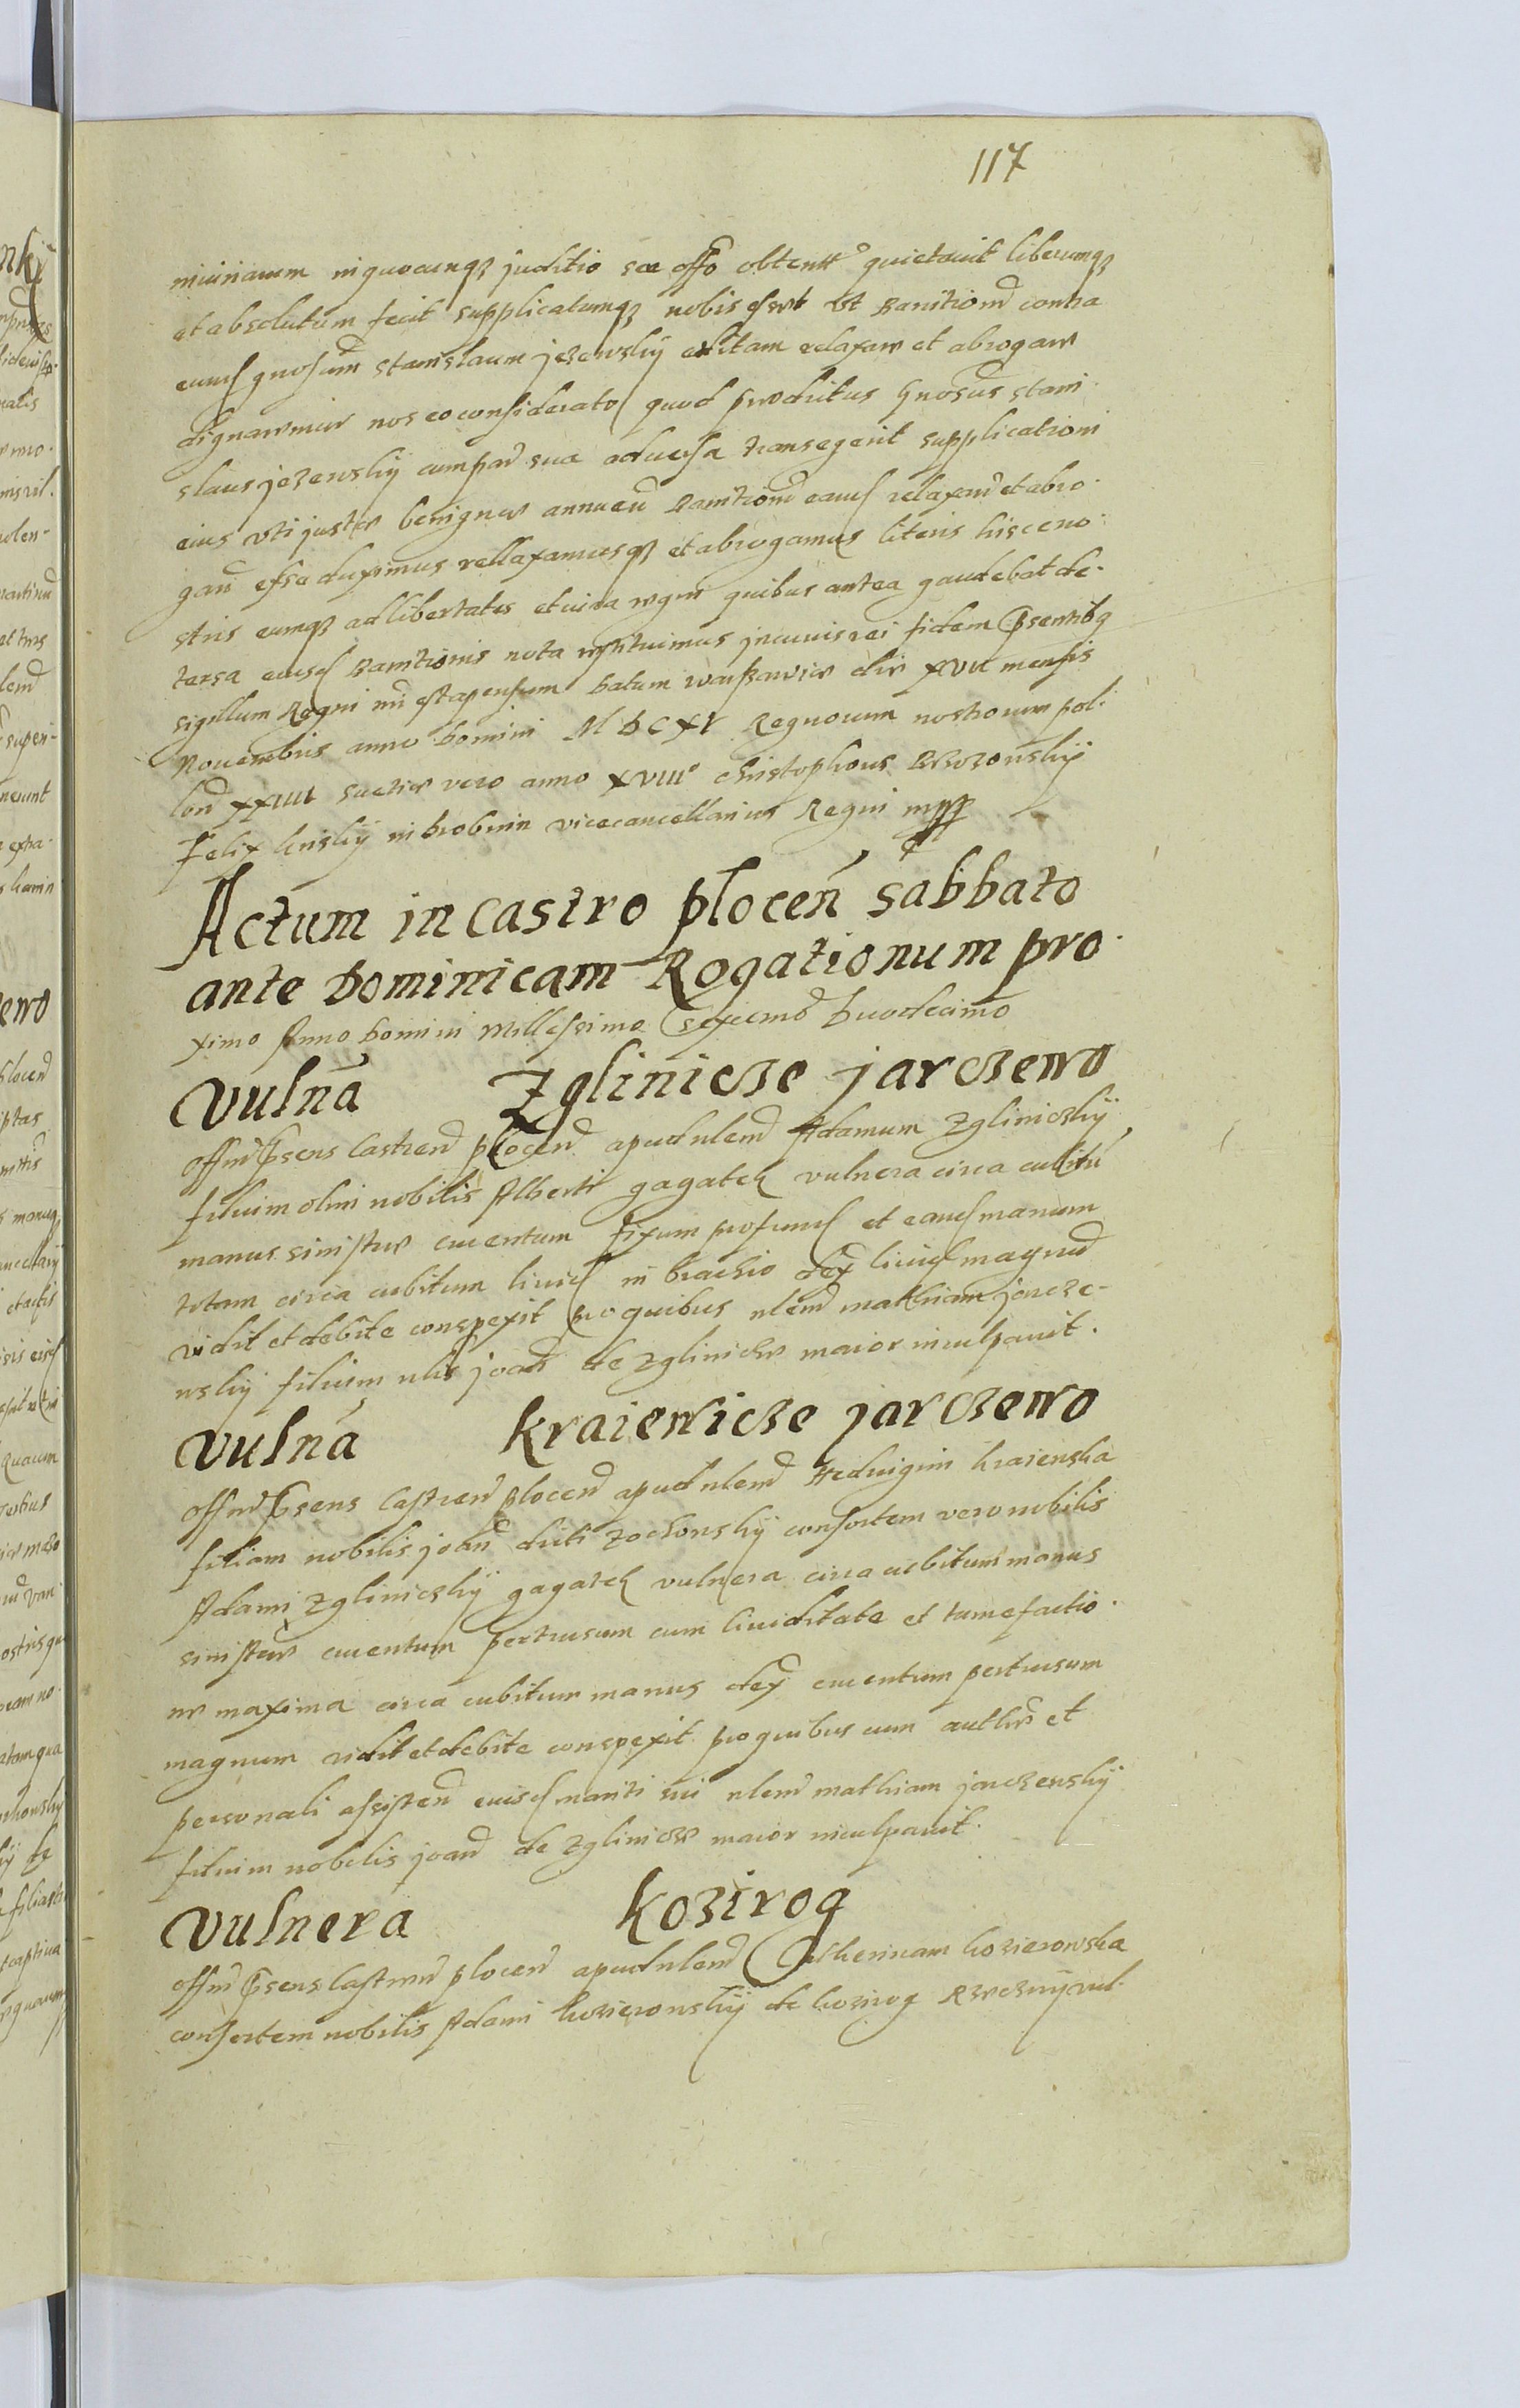 117
iniuriarum in quocunq3 juditio seu offo obtent quietauit liberumq3
et absolutum fecit supplicatumq3 nobis est vt Banitiond contra
eund gnosum stanislaum jezewskÿ editam relaxare et abrogare
dignaremur nos eo considerato quod prodictus Gnosus stani-
slaus jezewskÿ cum par sua aduersa transegerit supplicationi
eius vti juste benigne annuen Banitiond eand relaxand et abro-
gan esse duximus rellaxamusq3 et abrogamus literis hisce no-
stris eumq3 ad libertates et iura regni quibus antea gaudebat de-
tersa eiusd Banitionis nota restituimus in cuius rei fidem psentibq
sigillum Regni nri est apensum Datum warszawie die XVII mensis
Nouembris anno Domini M D C XI Regnorum nostrorum pol-
lon XXIIII Suetie vero anno XVIII° christophorus Brzozonskÿ
Felix krÿskÿ in Drobnin vicecancellarius Regni mpp
Actum in castro plocen sabbato
ante Dominicam Rogationum pro-
ximo Anno Domini Millessimo sexcentmo Duodecimo
Vulna Zglinicze jarczewo
Offm psens Castren plocen apud nlem Adamum Zgliniczkÿ
filium olim nobilis Alberti gagatek vulnera circa cubitu
manus sinistre cruentum fixum profund et eand manum
totam circa cubitum liuid in brachio dex liuid magnu
vidit et debite conspexit pro quibus nlem mathiam jarcze-
wskÿ filium nlis joan de Zglinicze maior inculpauit.
Vulna kraiewicze jarczewo
Offm psens Castren plocen apud nlem Hedvigim kraiewska
filiam nobilis joan dicti zochonskÿ consortem vero nobilis
Adami Zgliniczkÿ gagatek vulnera circa cubitum manus
sinistre cruentum pertusum cum liuiditate et tumefactio-
ne maxima circa cubitum manus dex cruentum pertusum
magnum vidit et debite conspexit pro quibus cum authe et
personali assisten eiusd mariti sui nlem mathiam jarczewskÿ
filium nobilis joan de Zglinicze maior inculpauit.
Vulnera kozirog
Offm psens Castren plocen apud nlem Catherinam kozierowska
consortem nobilis Adami kozierowskÿ de kozirog Rzeczny vul-